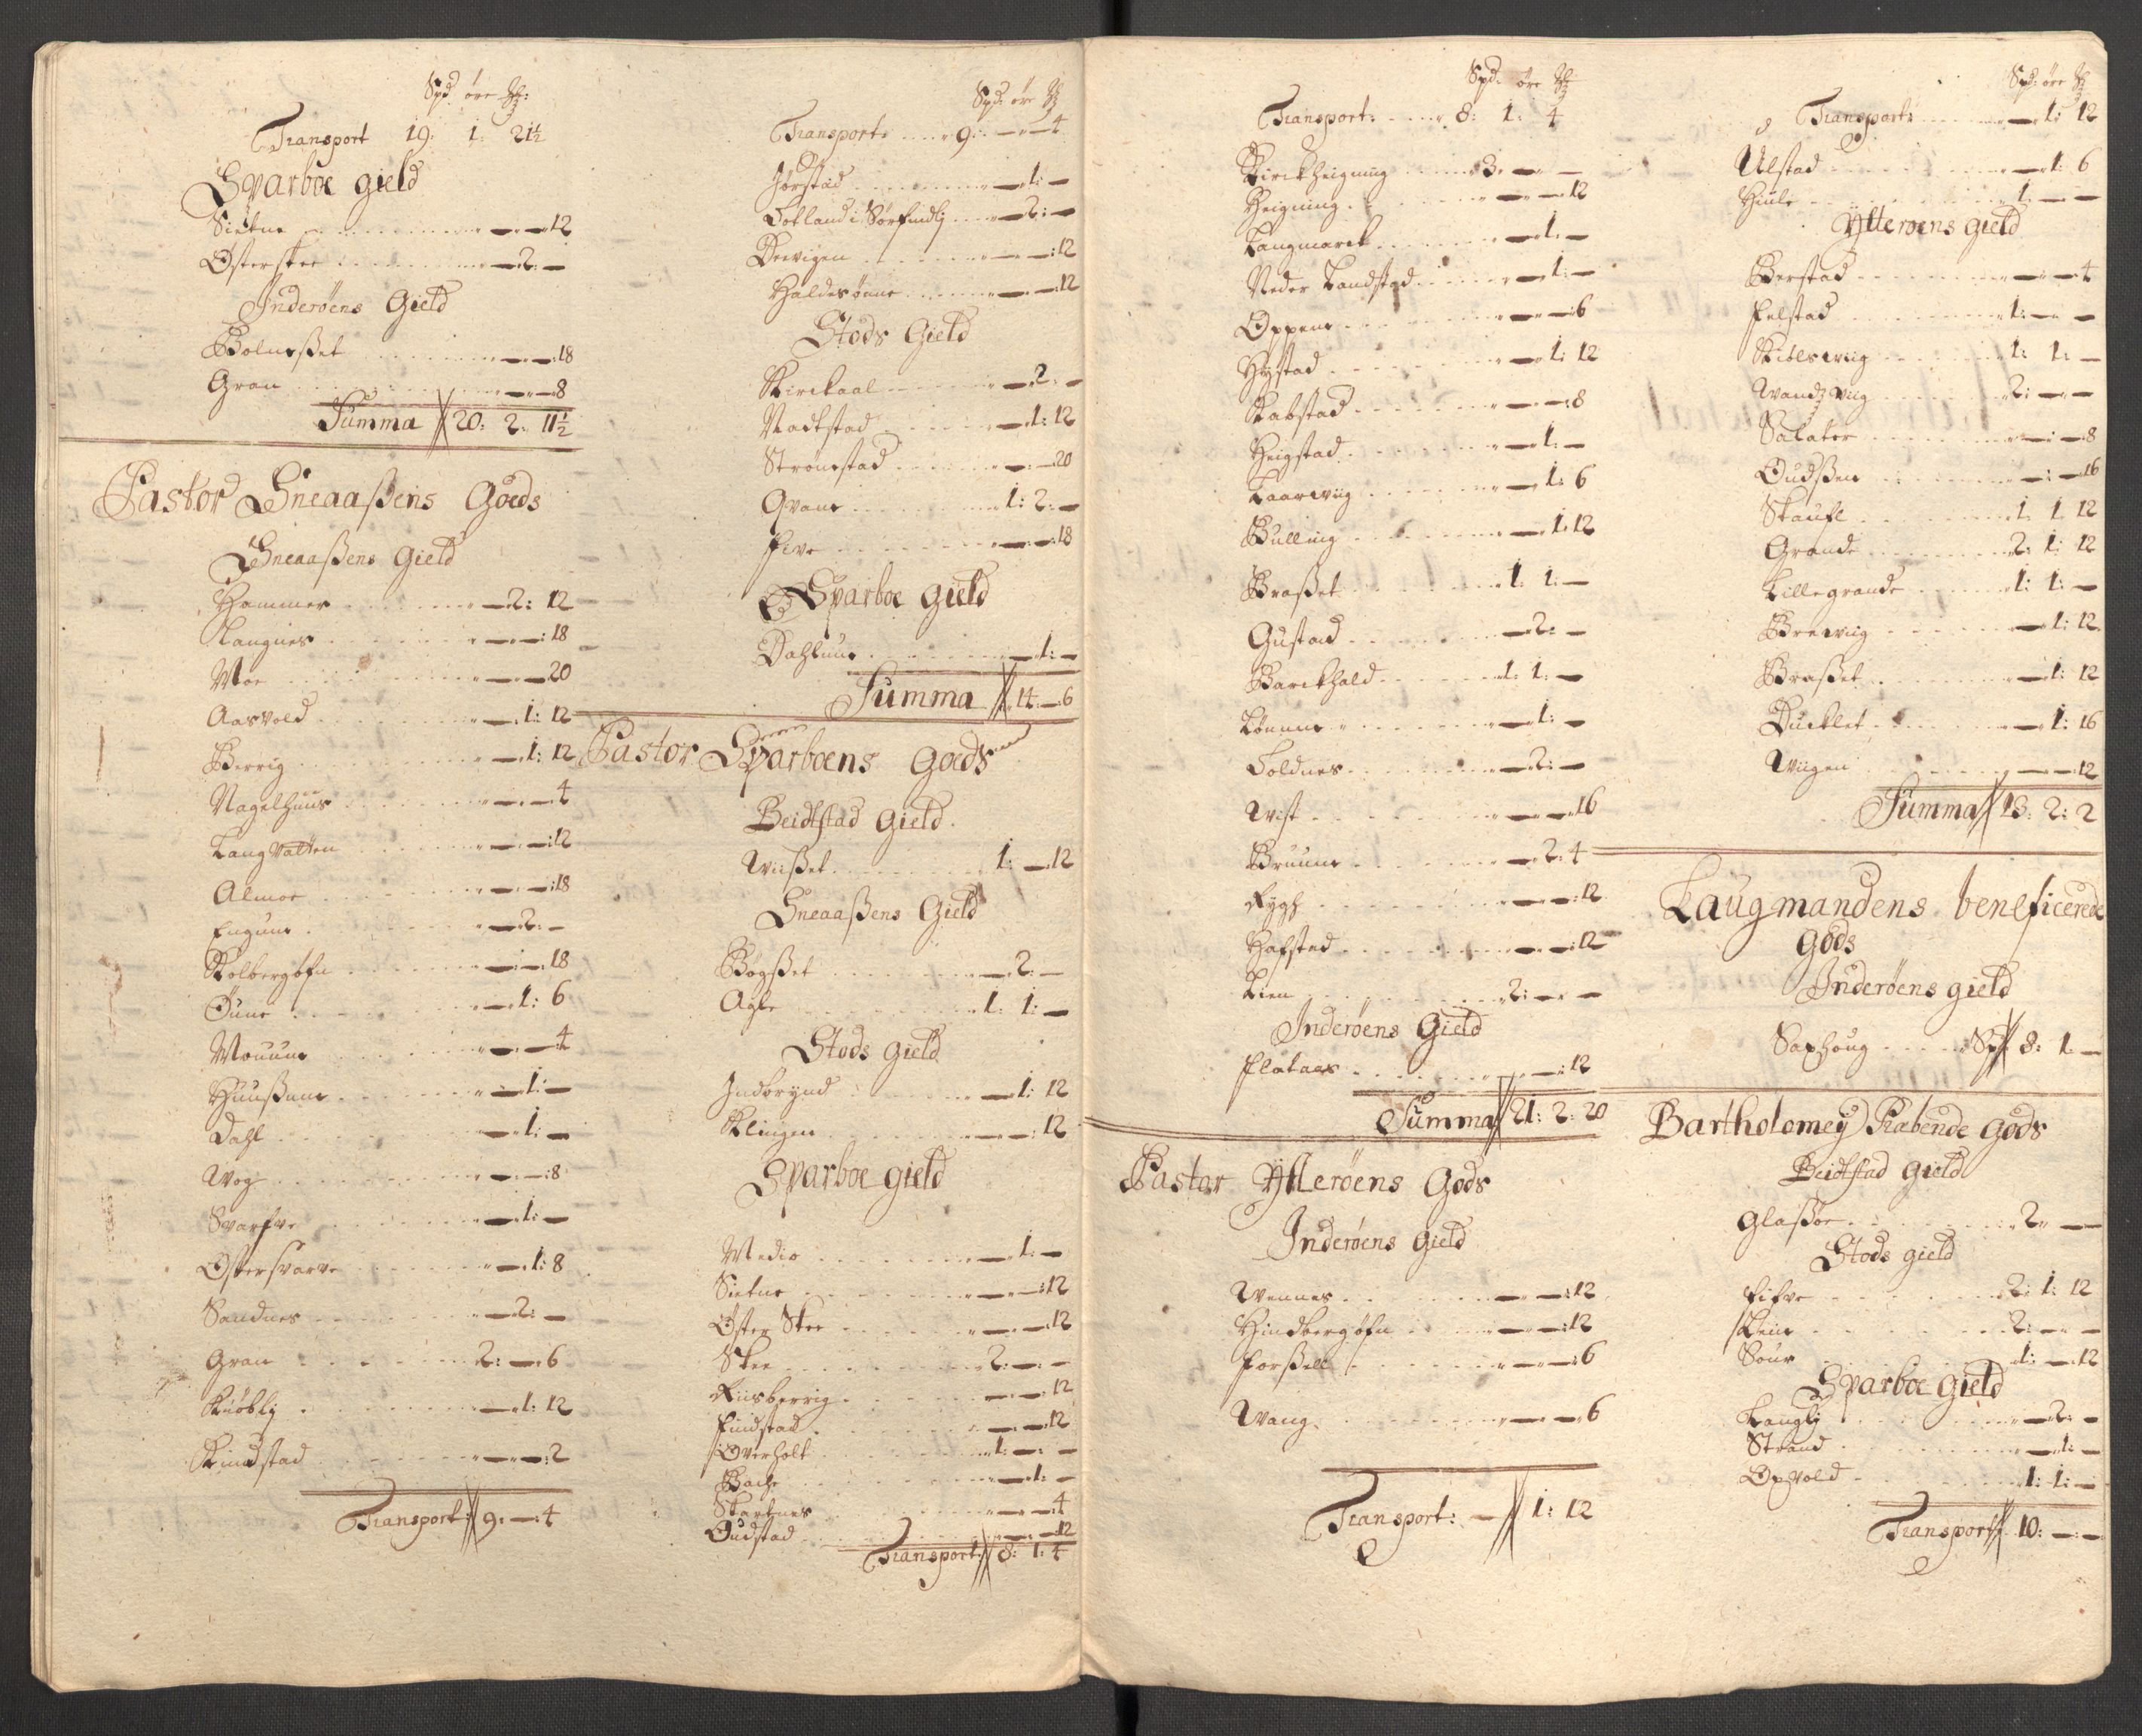 Spd. öre
Transport 19. 1: 21½
Sparboe gield
Sietne - - 12
Østerskee - 2: -
Inderöens Gield
Bolnesßet - - 18
Gran - - 8
Summa 20: 2: 11½
Pastor Sneaaßens Goeds
Sneaaßens Gield
Hammer - 2: 12
Langnes - - : 18
Moe - - 20
Aasvold - 1: 12
Berrig - 1: 12
Nagelhuus - - 4
Langvatten - - : 12
Almoe - - : 18
Engum - 2: -
Kolbergøfn - - : 18
Øune - 1: 6
Mouum - - 4
Huußum - 1: -
Dahl - 1: -
Wog - - : 8
Svarfve - 1: -
Østersvarve - 1: 8
Sandnes - 2: -
Gran 2: - 6
Kiøblj - 1: 12
Kindstad - - : 2
Transport: 9: - : 4
Spd: öre
Transport: 9: - 4
Jørstad - 1: -
Totland i Sørfindlj - 2: -
Devigen - - : 12
Haldesønne - - : 12
Stods Gield
Kirckaal - 2: -
Vadtstad - 1: 12
Strønestad - : - 20
Qvam 1: 2: -
Five - - : 18
Sparboe gield
Dahlum - 1: -
Summa 14: - : 6
Pastor Sparboens Goeds
Beidtstad Gield
Wiißet 1: - 12
Sneaaßens Gield
Bøgßet - 2: -
Agle 1: 1: -
Stods gield
Indbrynd - 1: 12
Klingen - - : 12
Sparboe gield
Medio - 1: -
Sietne - - : 12
Øster Skee - - : 12
Skee 2: - : -
Riisberrig - - : 12
Findstad - - 12
Overholt 1: - : -
Bache - 1: -
Skartnes - - : 4
Oudstad - - 12
Transport: 8: 1: 4
Spd. öre
Transport: 8: 1: 4
Kirckheigning 3: - -
Heigning - - 12
Langmarck - 1: -
Neder Landstad - 1: -
Oppem - - : 6
Hystad - 1: 12
Kabstad - - : 8
Heigstad - 1: -
Laarwiig - 1: 6
Bulling - 1: 12
Braßet 1: 1: -
Gustad - 2: -
Barckhald 1: 1: -
Lønnem - 1: -
Toldnes - 2: -
Wist - - 16
Bruum - 2: 4
Rygh - - : 12
Hafstad - - : 12
Lien 2: - -
Inderöens Gield
Flataas - - : 12
Summa 21: 2: 20
Pastor Ytteröens Gods
Inderöens Gield
Wennes - - : 12
Hindbergøfn - - : 12
Forßell - - : 6
Wang - - 6
Transport: - 1: 12
Spd: öre
Transport: - 1: 12
Ulstad - 1: 6
Hiule 1: - -
Ytterøens gield
Berstad - - 4
Felstad 1: - -
Kiblswiig 1: 1: -
Wandzwiig 2: - -
Salater - : - 8
Oudßen - : - 16
Skaufl 1. 1. 12
Grande 2: 1: 12
Lillegrande 1: 1: -
Brewiig - 1: 12
Braßet - 1: 12
Ducklet - 1: 16
Wiigen - - 12
Summa 13: 2: 2
Laugmandens beneficerede
Gods
Inderöens gield
Saxhoug Spd 8: 1 -
Bartholomey Præbende Gods
Beidtstad Gield
Glaßøe 2 - -
Stods gield
Fifve 2: 1: 12
Klem 2: - -
Sour 1: - 12
Sparboe gield
Langlj - 2: -
Strand - 1: -
Opvold 1: 1: -
Transport 10: - : -